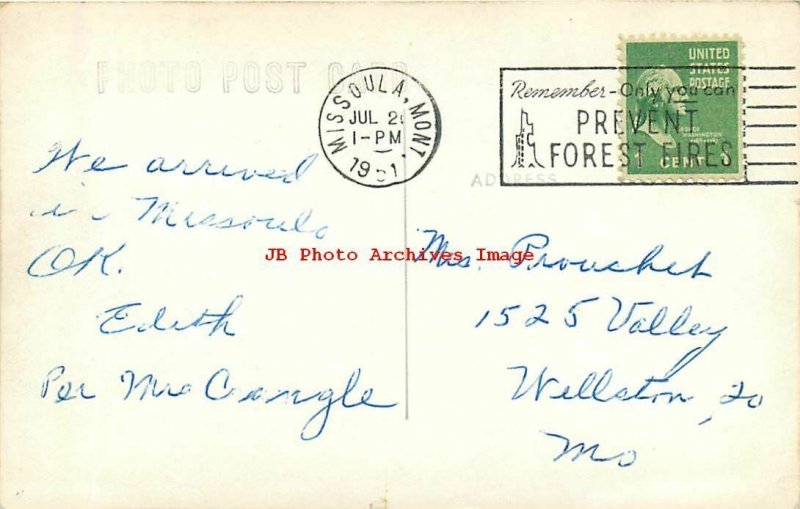 PHOTO POST CARD
MISSOULA, MONT.
JUL 2
1-PM
1951
Remember - Only you can
PREVENT
FOREST FIRES
UNITED
STATES
POSTAGE
GEORGE
WASHINGTON
1 CENT
ADDRESS
We arrived
in Missoula
OK.
Edith
Per Mrs
JB Photo Archives Image
Mrs. Prouchet
1525 Valley
Wellston, 20
Mo